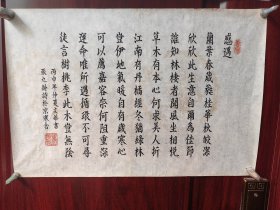 感遇
蘭葉春葳蕤桂華秋皎潔
欣欣此生意自爾為佳節
誰知林棲者聞風坐相悅
草木有本心何求美人折
江南有丹橘經冬猶綠林
豈伊地氣暖自有歲寒心
可以薦嘉客奈何阻重深
運命唯所遇循環不可尋
徒言樹桃李此木豈無陰
丙申年仲夏書
張九齡詩於京